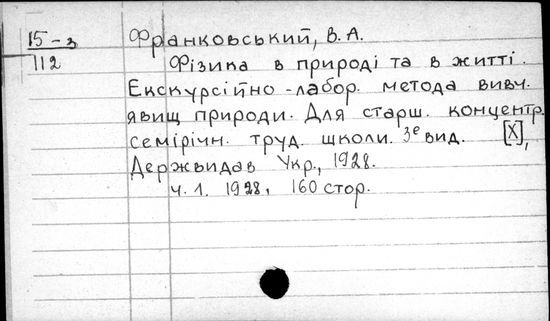 15-з
112
Франковський, В.А.
Фізика в природі та в житті.
Екскурсійно-лабор. метода вивч.
явищ природи. Для старш. концентр.
семірічн. труд. школи. 3е вид. [X],
Держвидав Укр., 1928.
ч.1. 1928, 160 стор.